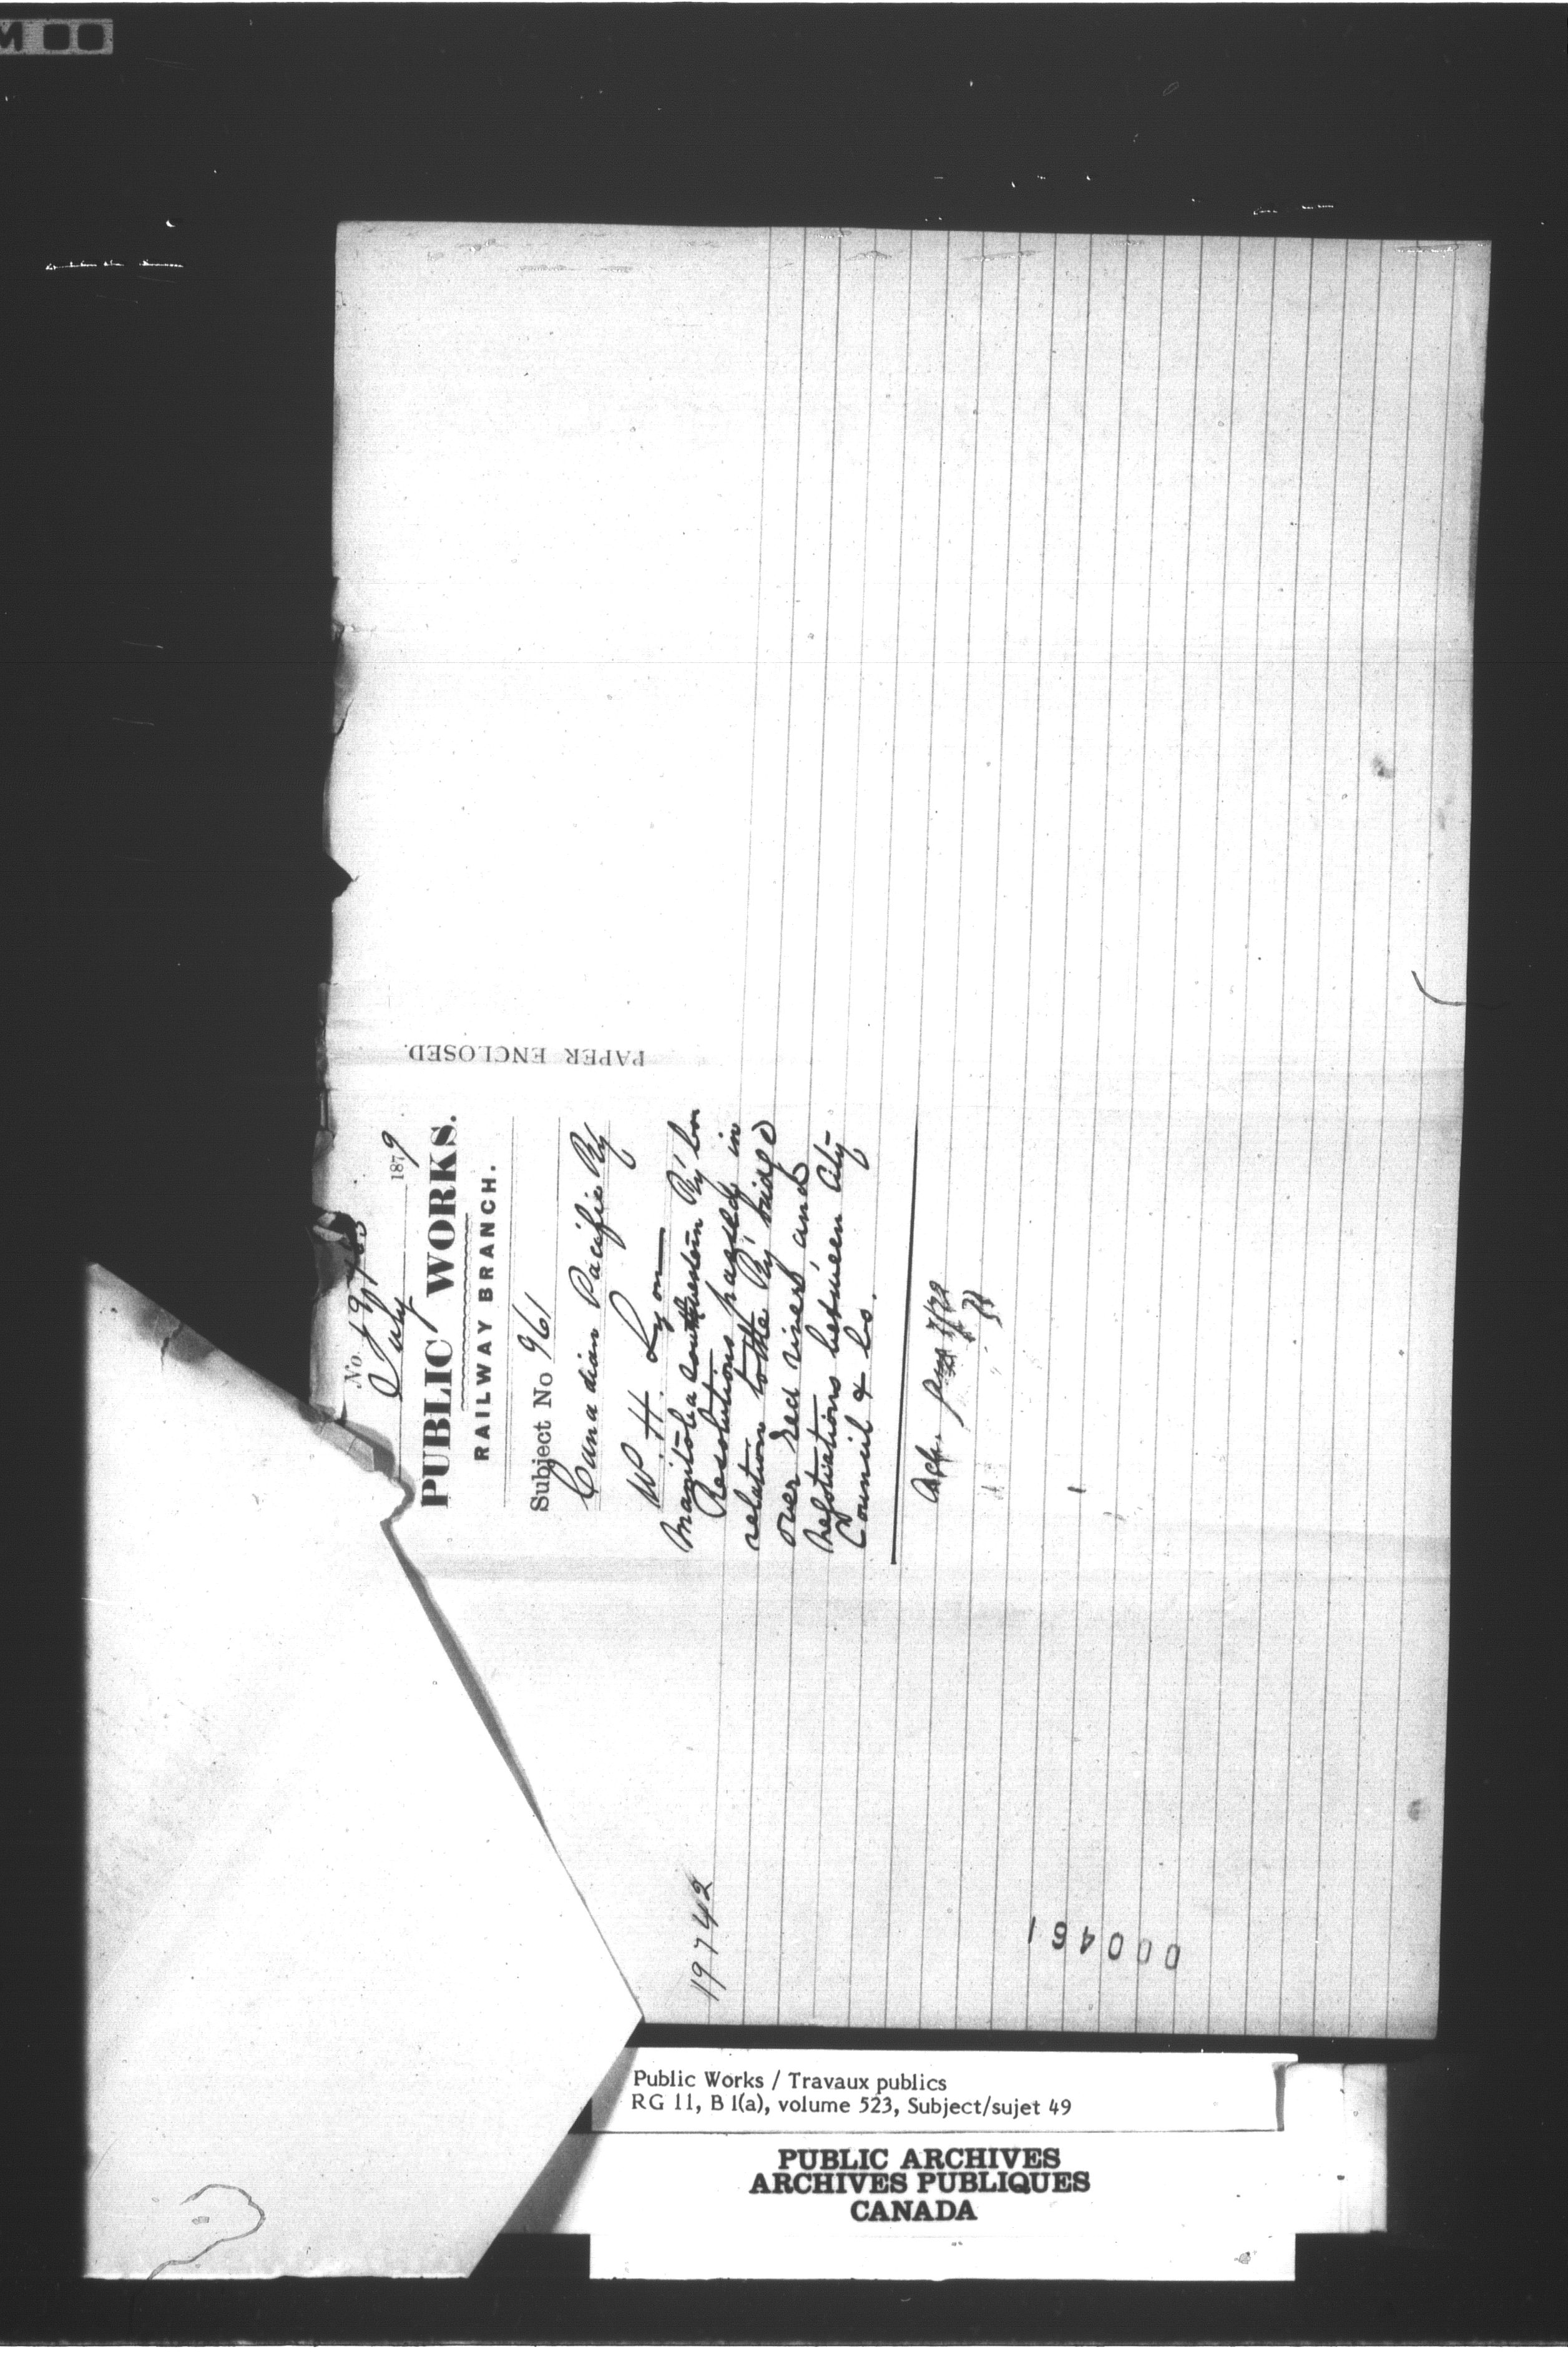 No. 19743
July 1879
PUBLIC WORKS.
RAILWAY BRANCH.
Subject No 961
Canadian Pacific Ry
W. H. Lyon
Manitoba Southwestern Ry Con
Resolutions passed in
relation to the Ry bridge
over Red river and
negotiations between City
Council & Co.
Ack.
PAPER ENCLOSED.
19742
000461
Public Works / Travaux publics
RG 11, B 1(a), volume 523, Subject/sujet 49
PUBLIC ARCHIVES
ARCHIVES PUBLIQUES
CANADA